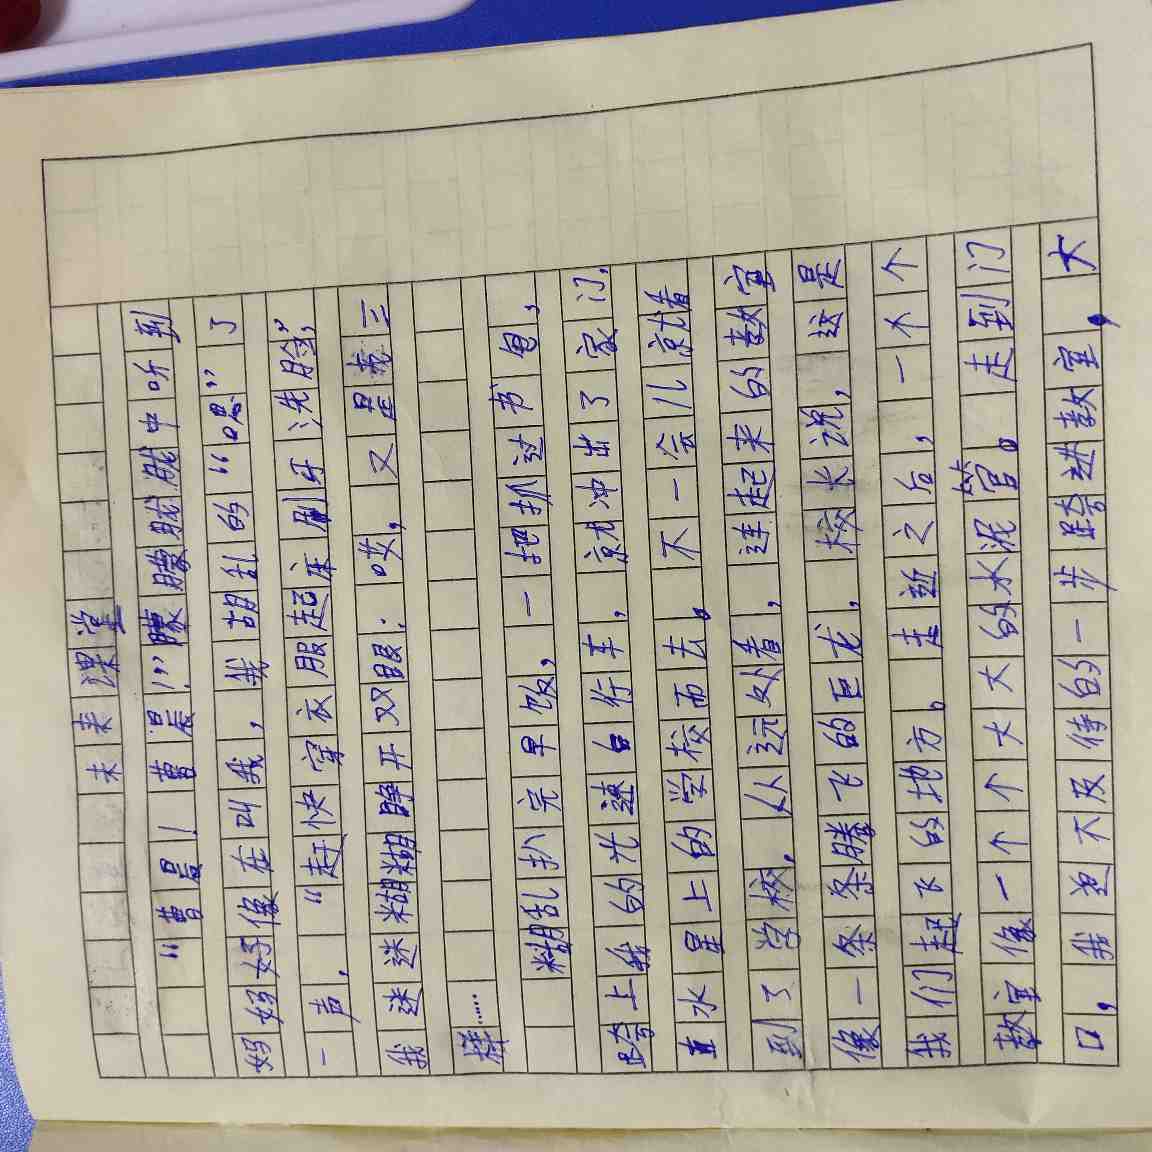 未来课堂
“曹晨！曹晨！”朦朦胧胧中听到
妈妈好像在叫我，我胡乱的“嗯”了
一声，“赶快穿衣服起床刷牙洗脸，”
我迷迷糊糊睁开双眼：哎，又是先三
样……
糊乱扒完早饭，一把抓过书包，
跨上我的光速自行车，就冲出了家门，
直水星上的学校而去。不一会儿就着
到了学校，从远处看，连起来的教室
像一条条腾飞的巨龙，校长说，这是
我们起飞的地方。走近之后，一个个
教室像一个个大大的水泥管。走到门
口，我迫不及待的一步跨进教室，大